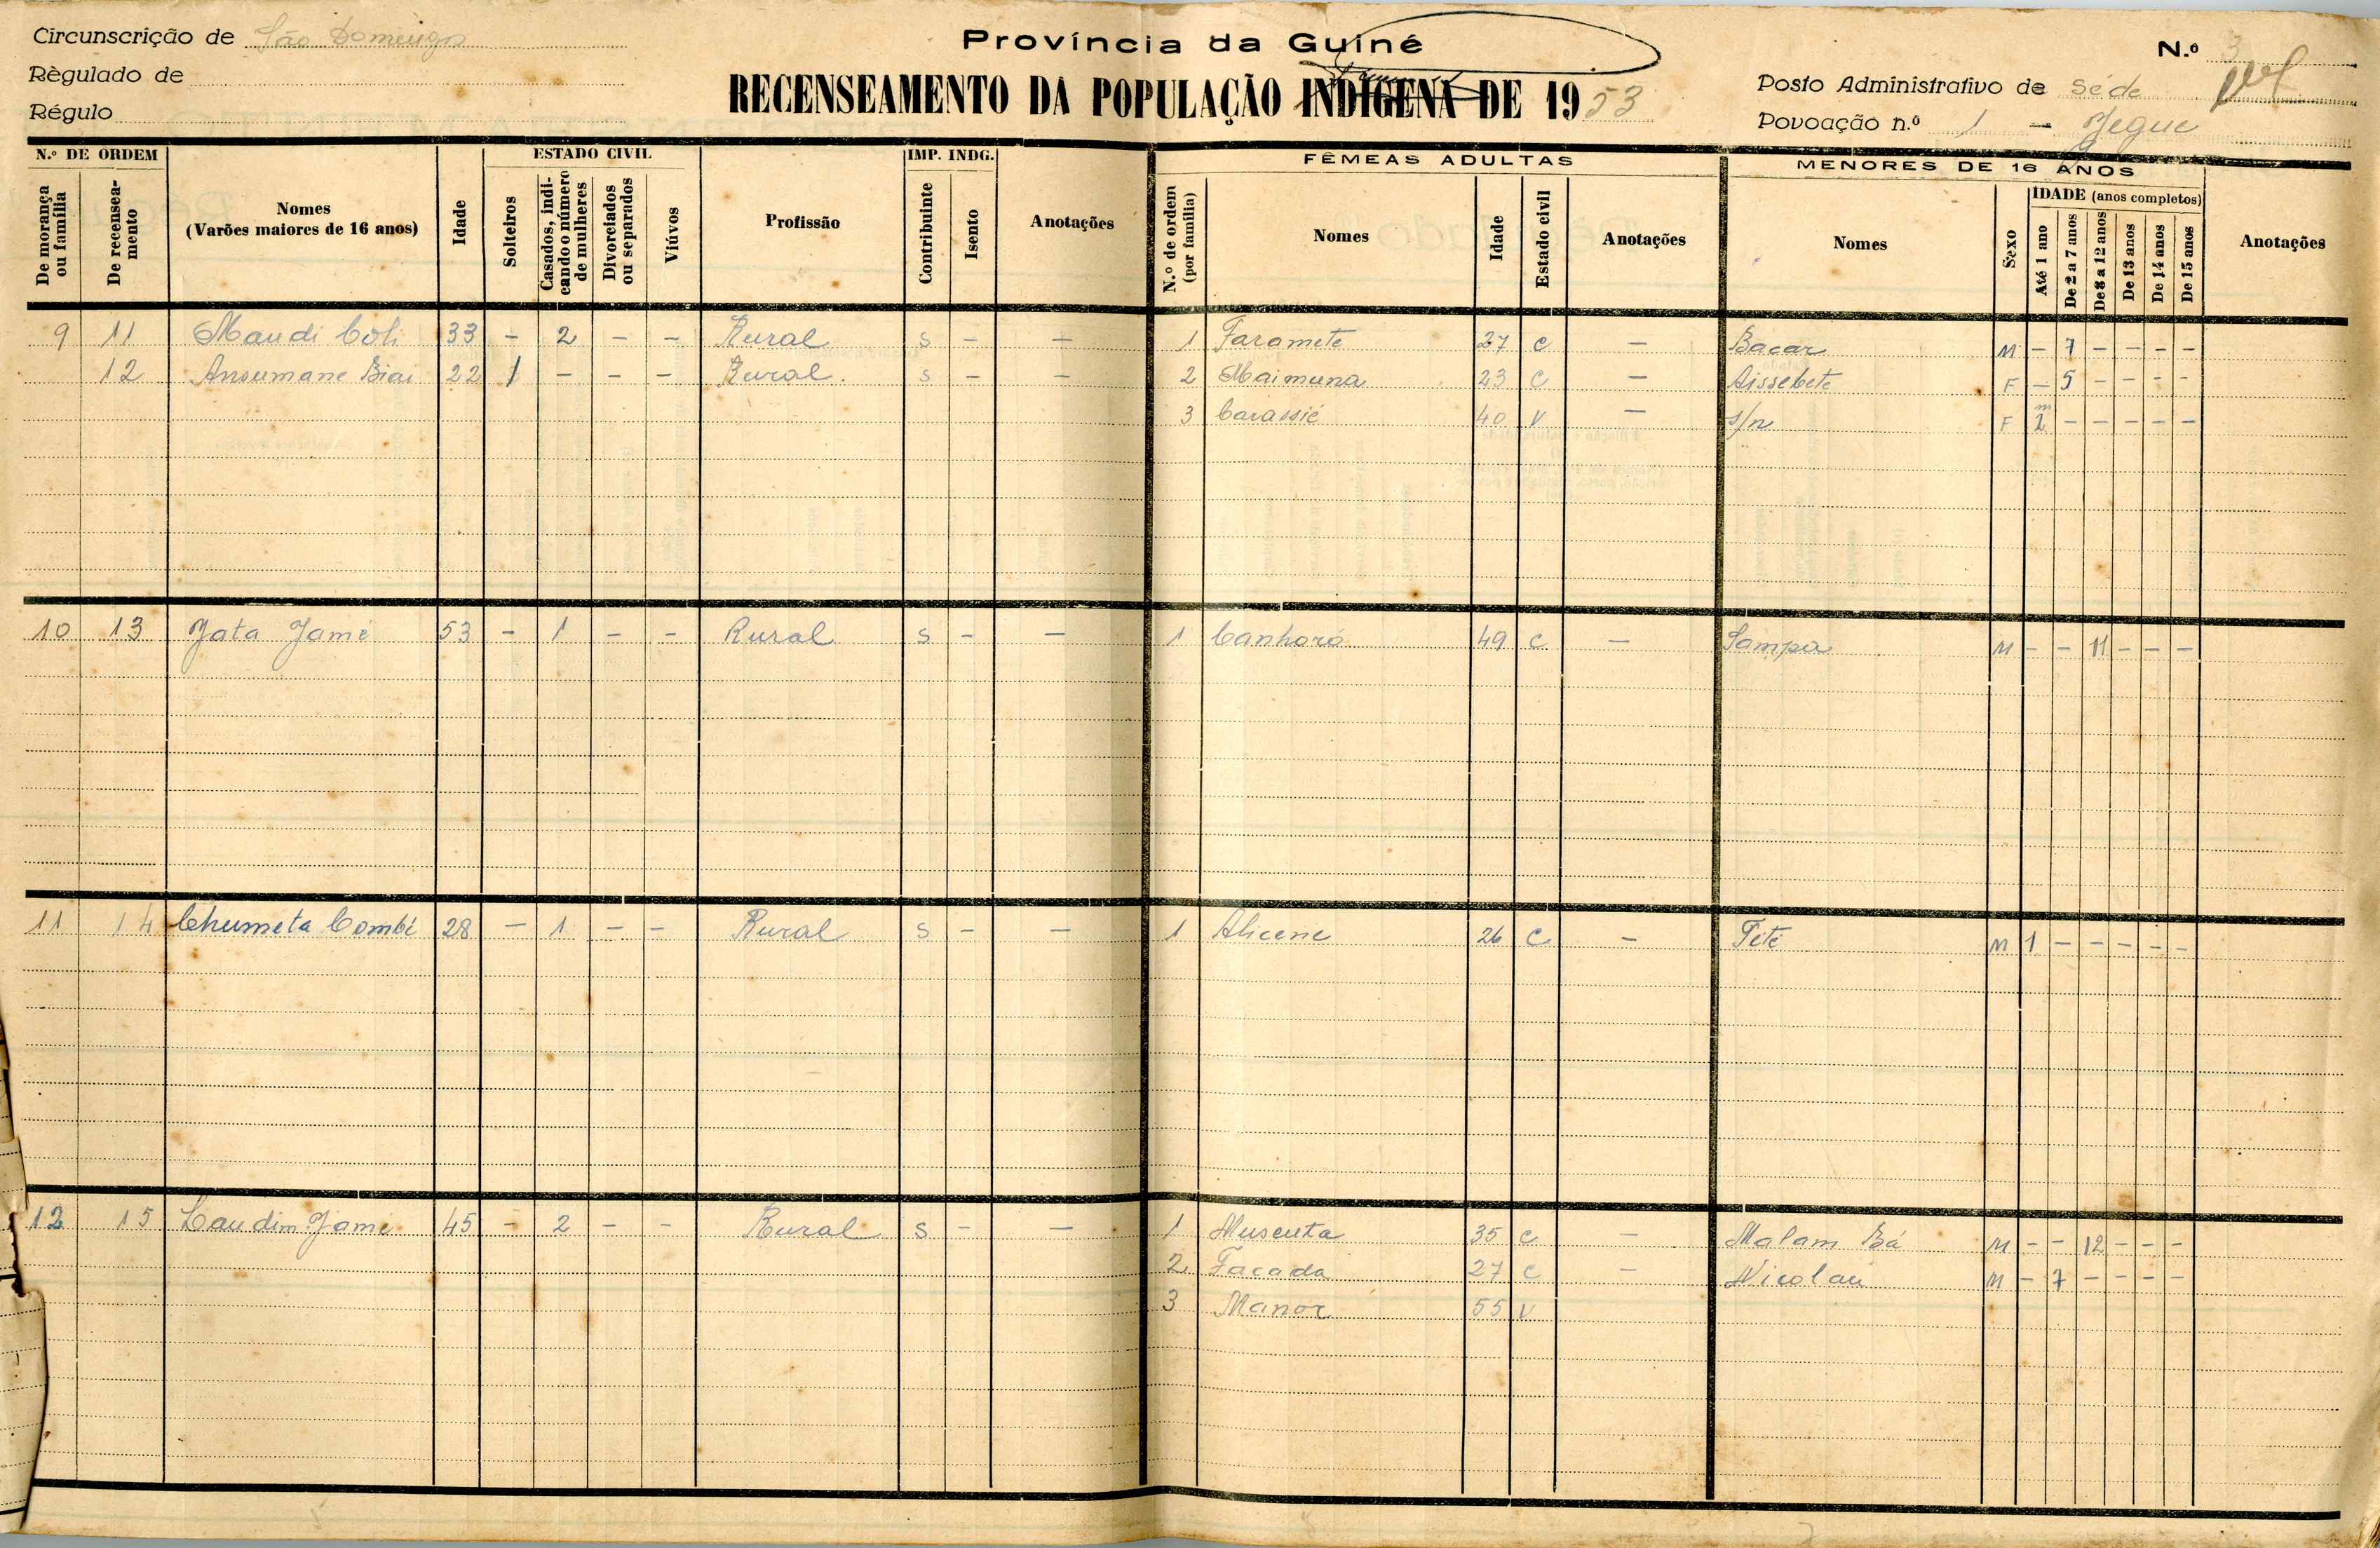 Circunscrição de São Domingos
Régulado de
Régulo
Província da Guiné
RECENSEAMENTO DA POPULAÇÃO INDÍGENA DE 1953
N.º 3
Posto Administrativo de Séde
Povoação n.º 1 - Jegue
N.º DE ORDEM
De morança ou família
De recenseamento
Nomes
(Varões maiores de 16 anos)
Idade
ESTADO CIVIL
Solteiros
Casados, indicando o número de mulheres
Divorciados ou separados
Viúvos
Profissão
IMP. INDG.
Contribuinte
Isento
Anotações
FÊMEAS ADULTAS
N.º de ordem (por família)
Nomes
Idade
Estado civil
Anotações
MENORES DE 16 ANOS
Nomes
Sexo
IDADE (anos completos)
Até 1 ano
De 2 a 7 anos
De 8 a 12 anos
De 13 anos
De 14 anos
De 15 anos
Anotações
9 11 Maudi Coli 33 - 2 - - Rural S - - 1 Faramete 27 C - Bacar M - 7 - - - -
12 Ansumane Biai 22 1 - - - Rural S - - 2 Maimuna 23 C - Aissebete F - 5 - - - -
3 Carassié 40 V - s/n F 2 m - - - - -
10 13 Jata Jamé 53 - 1 - - Rural S - - 1 Canhoró 49 C - Sampa M - - 11 - - -
11 14 Chumeta Combé 28 - 1 - - Rural S - - 1 Alicene 26 C - Tété M 1 - - - - -
12 15 Laudim Jamé 45 - 2 - - Rural S - - 1 Muscuta 35 C - Malam Bá M - - 12 - - -
2 Facada 27 C - Nicolau M - 7 - - - -
3 Manór 55 V